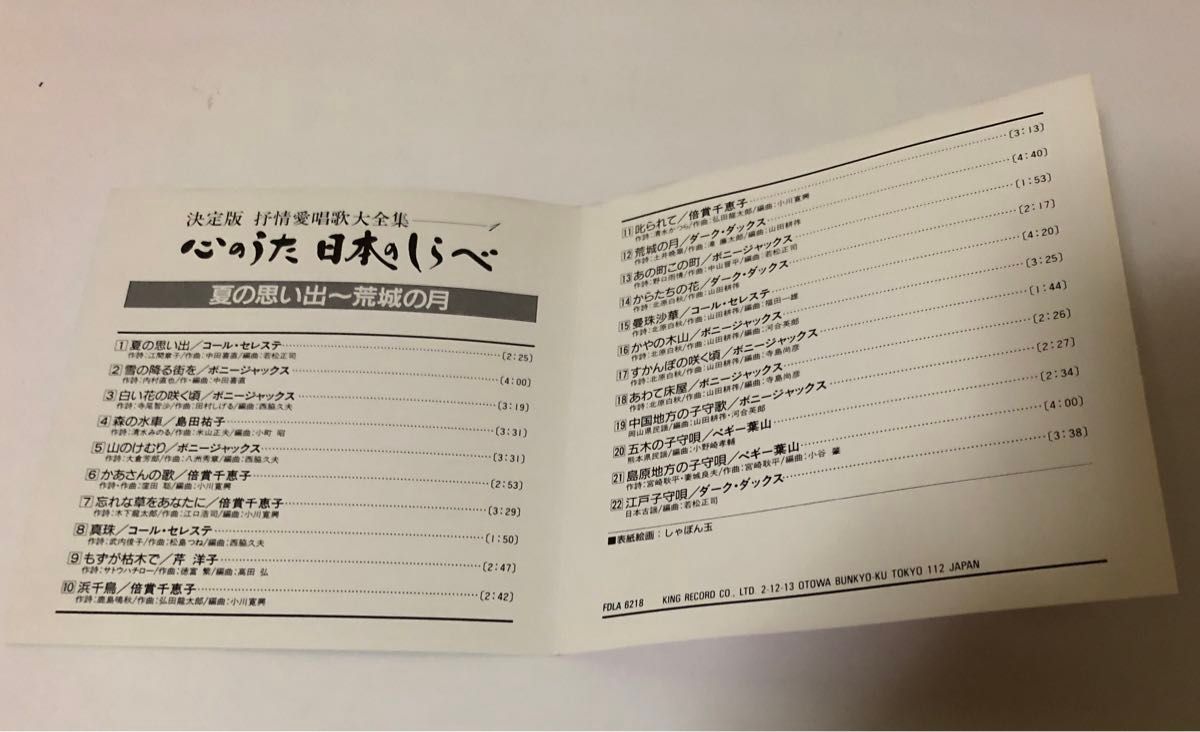 決定版 抒情愛唱歌大全集
心のうた 日本のしらべ
夏の思い出～荒城の月
1 夏の思い出／コール・セレステ……〔2:25〕
作詩：江間章子/作曲：中田喜直/編曲：若松正司
2 雪の降る街を／ボニージャックス……〔4:00〕
作詩：内村直也/作・編曲：中田喜直
3 白い花の咲く頃／ボニージャックス……〔3:19〕
作詩：寺尾智沙/作曲：田村しげる/編曲：西脇久夫
4 森の水車／島田祐子……〔3:31〕
作詩：清水みのる/作曲：米山正夫/編曲：小町 昭
5 山のけむり／ボニージャックス……〔3:31〕
作詩：大倉芳郎/作曲：八洲秀章/編曲：西脇久夫
6 かあさんの歌／倍賞千恵子……〔2:53〕
作詩・作曲：窪田 聡/編曲：小川寛興
7 忘れな草をあなたに／倍賞千恵子……〔3:29〕
作詩：木下龍太郎/作曲：江口浩司/編曲：小川寛興
8 真珠／コール・セレステ……〔1:50〕
作詩：武内俊子/作曲：松島つね/編曲：西脇久夫
9 もずが枯木で／芹 洋子……〔2:47〕
作詩：サトウハチロー/作曲：徳富 繁/編曲：高田 弘
10 浜千鳥／倍賞千恵子……〔2:42〕
作詩：鹿島鳴秋/作曲：弘田龍太郎/編曲：小川寛興
11 叱られて／倍賞千恵子……〔3:13〕
作詩：清水かつら/作曲：弘田龍太郎/編曲：小川寛興
12 荒城の月／ダーク・ダックス……〔4:40〕
作詩：土井晩翠/作曲：滝 廉太郎/編曲：山田耕筰
13 あの町この町／ボニージャックス……〔1:53〕
作詩：野口雨情/作曲：中山晋平/編曲：若松正司
14 からたちの花／ダーク・ダックス……〔2:17〕
作詩：北原白秋/作曲：山田耕筰
15 曼珠沙華／コール・セレステ……〔4:20〕
作詩：北原白秋/作曲：山田耕筰/編曲：福田一雄
16 かやの木山／ボニージャックス……〔3:25〕
作詩：北原白秋/作曲：山田耕筰/編曲：河合英郎
17 すかんぽの咲く頃／ボニージャックス……〔1:44〕
作詩：北原白秋/作曲：山田耕筰/編曲：寺島尚彦
18 あわて床屋／ボニージャックス……〔2:26〕
作詩：北原白秋/作曲：山田耕筰/編曲：寺島尚彦
19 中国地方の子守歌／ボニージャックス……〔2:27〕
岡山県民謡/編曲：山田耕筰・河合英郎
20 五木の子守唄／ペギー葉山……〔2:34〕
熊本県民謡/編曲：小野崎孝輔
21 島原地方の子守唄／ペギー葉山……〔4:00〕
作詩：宮崎耿平・妻城良夫/作曲：宮崎耿平/編曲：小谷 肇
22 江戸子守唄／ダーク・ダックス……〔3:38〕
日本古謡/編曲：若松正司
■表紙絵画：しゃぼん玉
FDLA 6218 KING RECORD CO., LTD. 2-12-13 OTOWA BUNKYO-KU TOKYO 112 JAPAN